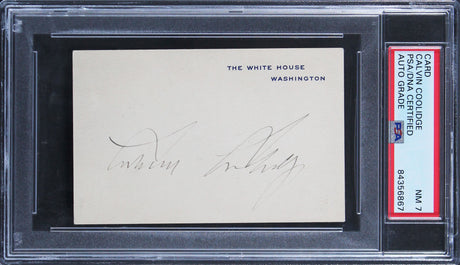 THE WHITE HOUSE
WASHINGTON
Calvin Coolidge
CARD
CALVIN COOLIDGE
PSA/DNA CERTIFIED
AUTO GRADE
NM 7
PSA
84356867